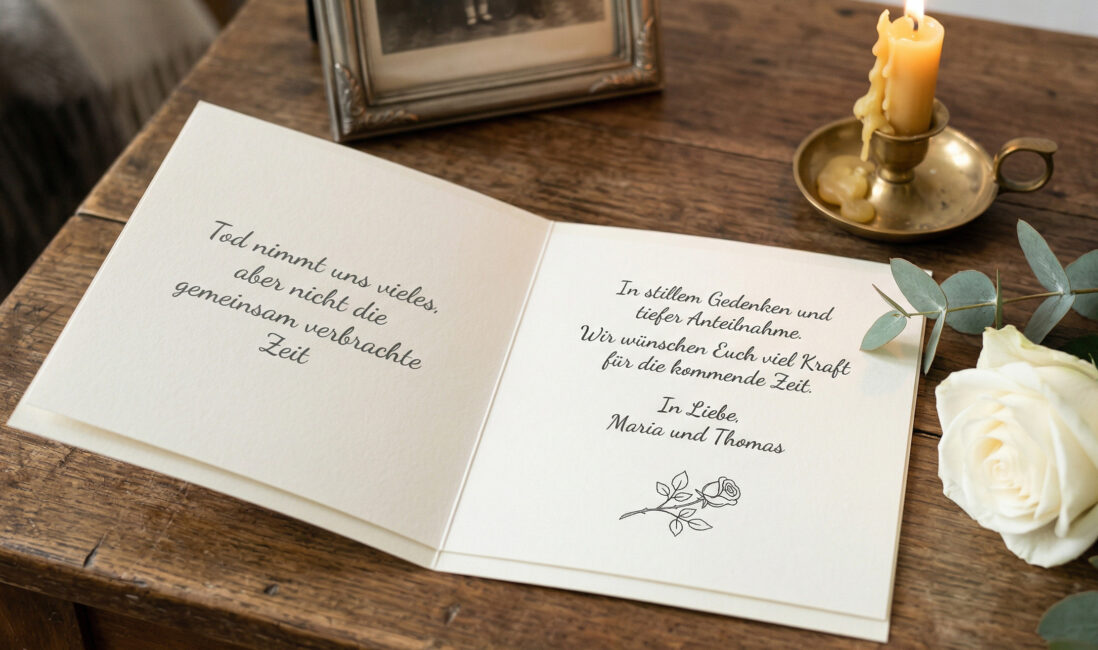 Tod nimmt uns vieles,
aber nicht die
gemeinsam verbrachte
Zeit
In stillem Gedenken und
tiefer Anteilnahme.
Wir wünschen Euch viel Kraft
für die kommende Zeit.
In Liebe,
Maria und Thomas